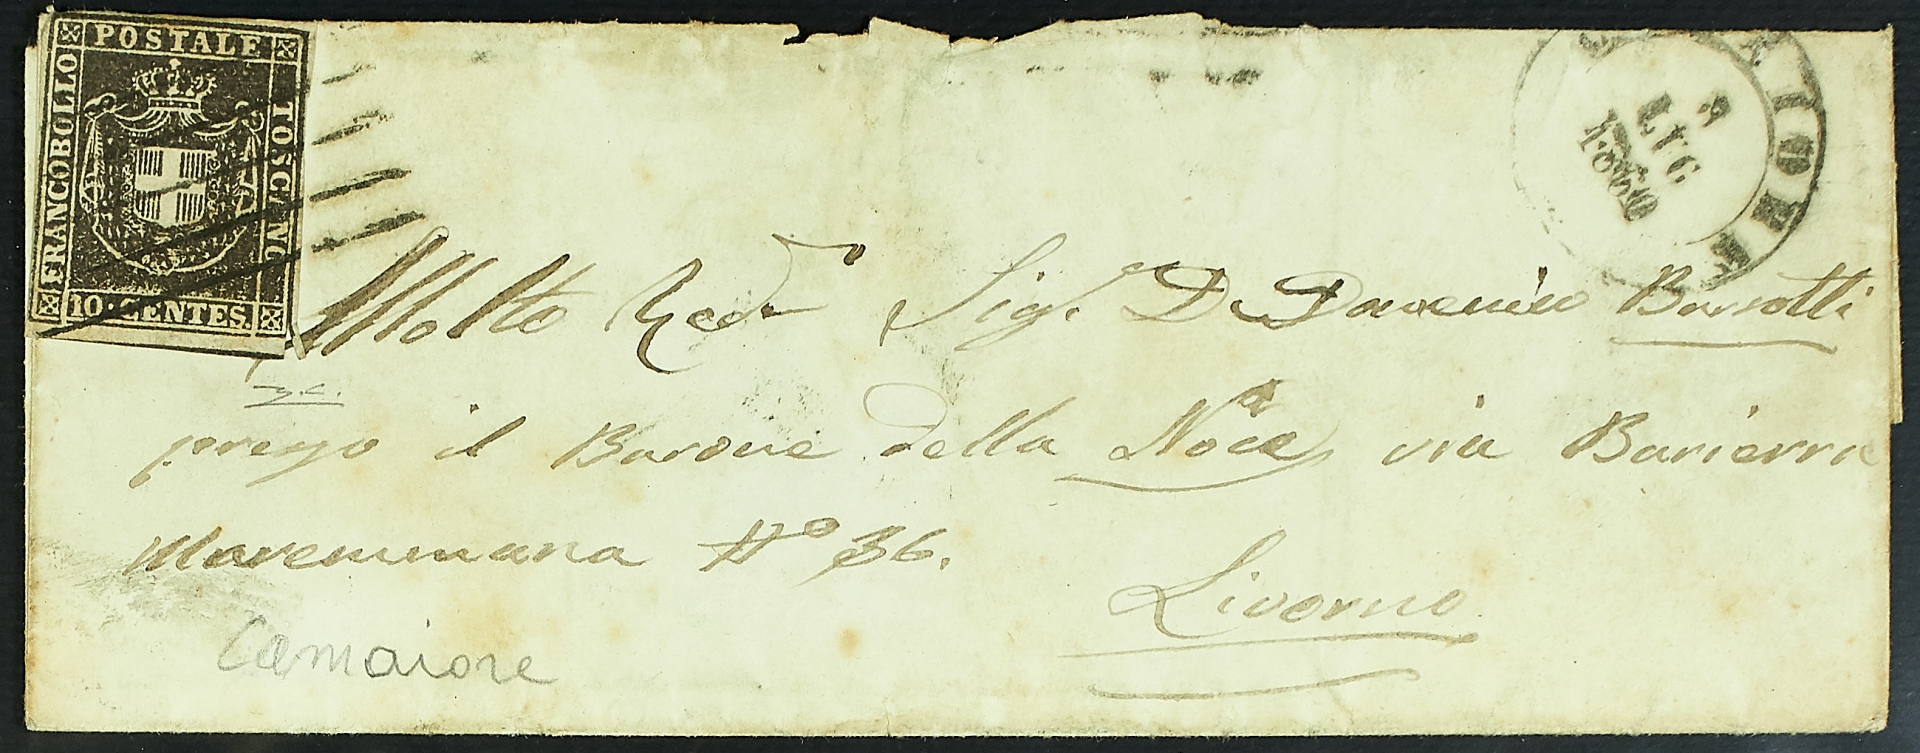 FRANCOBOLLO POSTALE TOSCANO
10 CENTES.
LUG
1860
Molto Red. Sig. D Domenico Barsotti
presso il Barone della Noce via Barierra
Maremmana N° 36.
Livorno
Camaiore